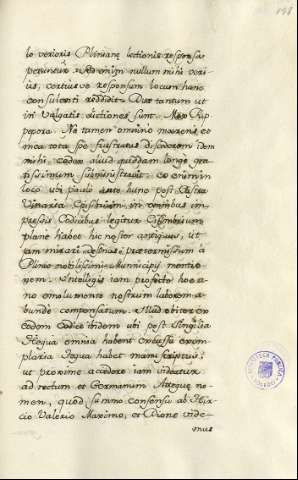 191
lo verioris Plinianę lectionis responsa
petuntur. Ad enim nullum mihi veri
us, certiusve responsum locum hunc
consulenti redditit. Duę tantum ut
in Vulgatis dictiones sunt.
pepora. Ne tamen omnino mærens eo
mea tota spe frustratus discederem idem
mihi codex aliud quiddam longe gra
tissimum subministravit. eo enim in
loco ubi paulo ante hunc post Castra
Vinaria Episibrium, in omnibus im
pressis Codicibus legitur Cisimbrium
plane habet hic noster antiquus, ut
iam mirari desinas prætermissum a
Plinio nobilissimi Municipij mentio
nem. Intellegis iam profecto hoc a
no emolumento nostrum laborem a
bunde compensatum. Illud obiter eo
eodem Codice itidem ubi post Singilia
Ategua omnia habent excussa exem
plaria Ategua habet manuscriptus;
ut proxime accedere iam videatur
ad rectum et Germanum Ategue no
men, quod summo consensu ab Hir
cio Valerio Maximo, et Dione vide
mus
BIBLIOTECA PUBLICA
TOLEDO